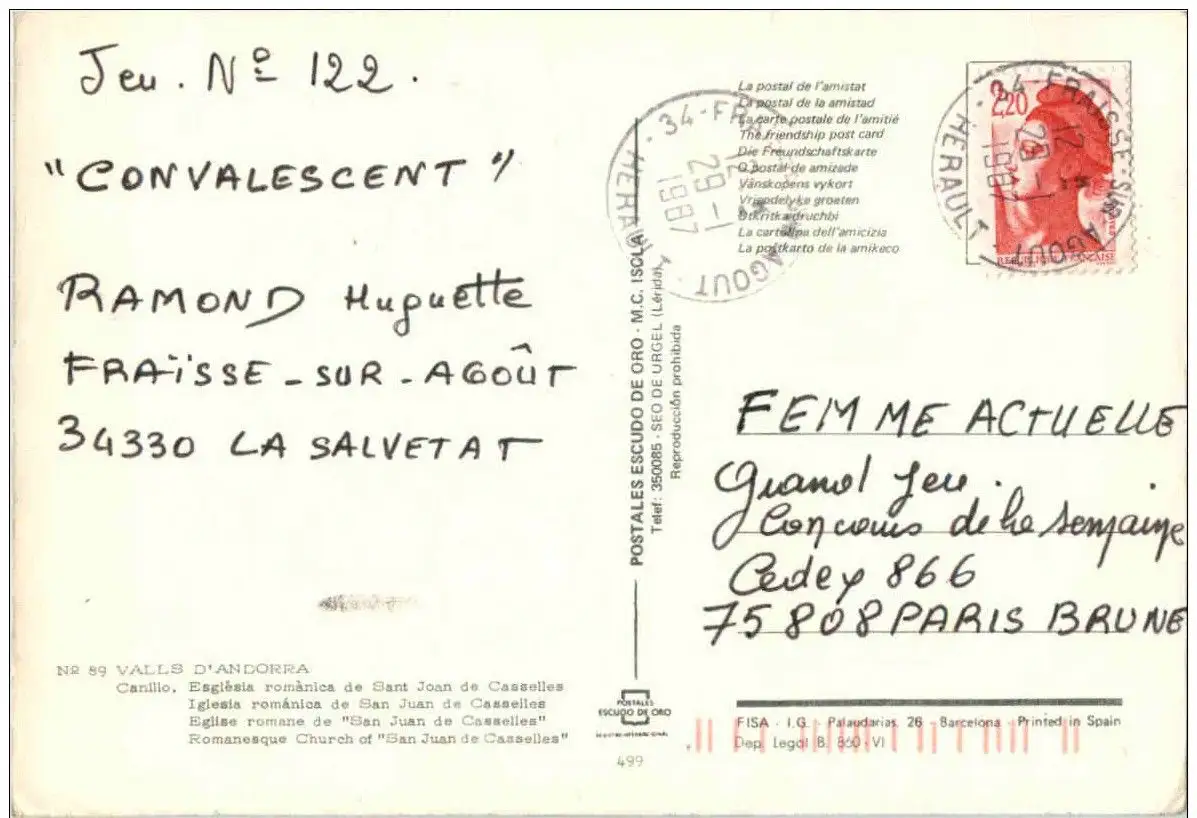 Jeu. Nº 122.
"CONVALESCENT"
RAMOND Huguette
FRAÏSSE-SUR-AGOÛT
34330 LA SALVETAT
Nº 89 VALLS D'ANDORRA
Canillo. Església romànica de Sant Joan de Casselles
Iglesia románica de San Juan de Casselles
Eglise romane de "San Juan de Casselles"
Romanesque Church of "San Juan de Casselles"
34-FRAISSE-SUR-AGOUT
12
29-1
1987
HERAULT
POSTALES ESCUDO DE ORO - M.C. ISCLA
Telef: 350085 - SEO DE URGEL (Lérida)
Reproducción prohibida
POSTALES
ESCUDO DE ORO
499
La postal de l'amistat
La postal de la amistad
La carte postale de l'amitié
The friendship post card
Die Freundschaftskarte
O postal de amizade
Vänskapens vykort
Vriendelyke groeten
Otkritka druchbi
La cartolina dell'amicizia
La poŝtkarto de la amikeco
2,20
REPUBLIQUE FRANÇAISE
34-FRAISSE-SUR-AGOUT
12
29-1
1987
HERAULT
FEMME ACTUELLE
Grand Jeu.
Concours de la semaine
Cedex 866
75808 PARIS BRUNE
FISA - I.G. Palaudarias, 26 - Barcelona - Printed in Spain
Dep. Legal B. 860-VI